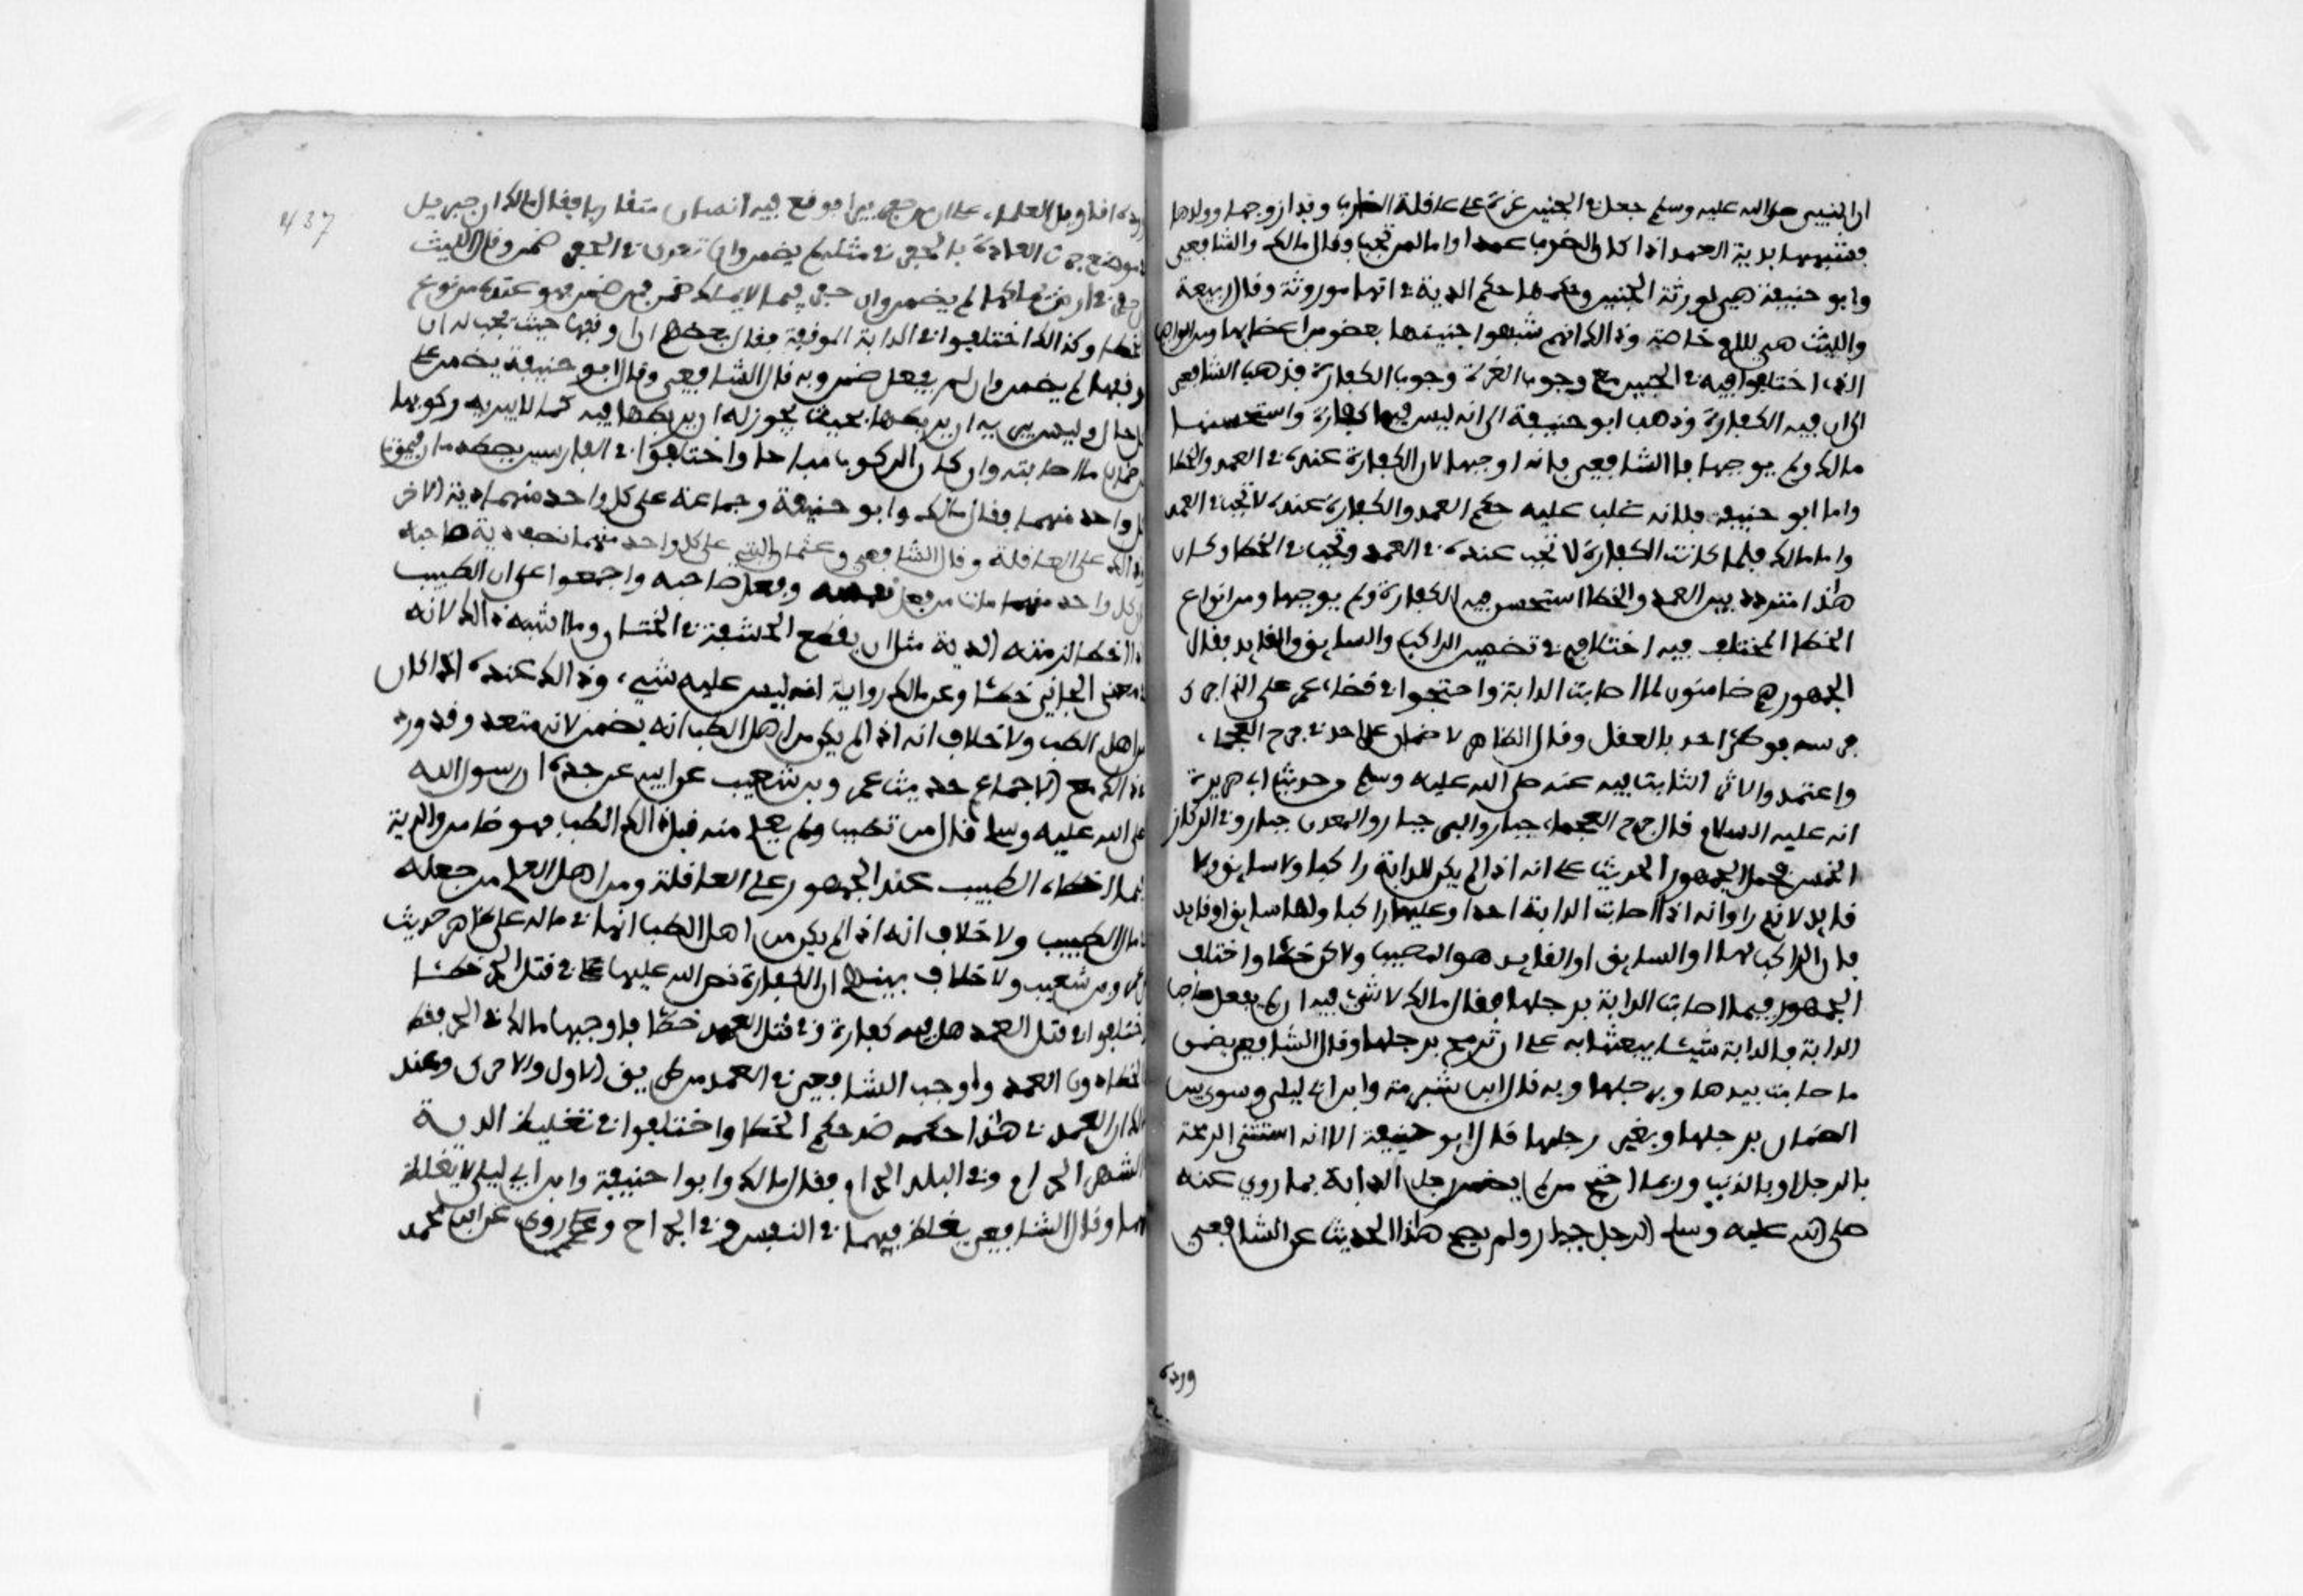 ان النبي صلى الله عليه وسلم جعل في الجنين غرة على عاقلة الضارب وبدا زوجها وولدها
فشبهها بدية العمد اذا كان الضرب عمدا واما لمن تجب وقال مالك والشافعي
وابو حنيفة هي لورثة الجنين وحكمها حكم الدية في انها موروثة وقال ربيعة
والليث هي للام خاصة وذالك انهم شبهوا جنينها بعضو من اعضايها ومن الواجب
الذي اختلفوا فيه في الجنين مع وجوب الغرة وجوب الكفارة فذهب الشافعي
الى ان فيه الكفارة وذهب ابو حنيفة الى انه ليس فيها كفارة واستحسنها
مالك ولم يوجبها فاما الشافعي فانه اوجبها لان الكفارة عنده في العمد والخطا
واما ابو حنيفة فلانه غلب عليه حكم العمد والكفارة عنده لا تجب في العمد
واما مالك فلما كانت الكفارة لا تجب عنده في العمد وتجب في الخطا وكان
هذا مترددا بين العمد والخطا استحسن فيه الكفارة ولم يوجبها ومن انواع
الخطا المختلف فيه اختلافهم في تضمين الراكب والسايق والقايد فقال
الجمهور هم ضامنون لما اصابت الدابة واحتجوا في قضاء عمر على الذي اجرى
فرسه فوطئ احد بالعقل وقال الظاهر لا ضمان على احد في جرح العجماء
واعتمدوا الاثر الثابت فيه عنه صلى الله عليه وسلم وحديث ابي هريرة
انه عليه السلام قال جرح العجماء جبار والبير جبار والمعدن جبار وفي الركاز
الخمس فحمل الجمهور الحديث على انه اذا لم يكن للدابة راكب ولا سايق ولا
قايد لانهم راوا انه اذا اصابت الدابة احدا وعليها راكب اولها سايق او قايد
فان الراكب لها او السايق او القايد هو المصيب ولاكن خطئا واختلف
الجمهور فيما اصابت الدابة برجلها فقال مالك لا شيء فيه ان لم يفعل صاحب
الدابة بالدابة شيئا يبعثها به على ان ترمح برجلها وقال الشافعي يضمن
ما اصابت بيدها وبرجلها وبه قال ابن شبرمة وابن ابي ليلى وسوى بين
الضمان برجلها وبغير رجلها قال ابو حنيفة الا انه استثنى الرمحة
بالرجل او بالذنب وربما احتج من لم يضمن رجل الدابة بما روي عنه
صلى الله عليه وسلم الرجل جبار ولم يصح هذا الحديث عن الشافعي
ورده
437
ورده اقاويل العلماء على ان من حفر بيرا فوقع فيه انسان متقاربا فقال مالك ان حفر
بموضع جرت العادة بالحفر في مثله لم يضمن وان تعدى في الحفر ضمن وقال الليث
ان حفر في ارض يملكها لم يضمن وان حفر فيما لا يملك ضمن فمن ضمن فهو عنده من نوع
الخطا وكذالك اختلفوا في الدابة الموقفة فقال بعضهم ان اوقفها حيث يجب له ان
يوقفها لم يضمن وان لم يفعل ضمن وبه قال الشافعي وقال ابو حنيفة يضمن على
كل حال وليس يبريه ان يربطها بحيث يجوز له ان يربطها فيه كما لا يبريه ركوبها
من ضمان ما اصابته وان كان الركوب مباحا واختلفوا في الفارسين يصطدمان فيموت
كل واحد منهما فقال مالك وابو حنيفة وجماعة على كل واحد منهما دية الاخر
وذالك على العاقلة وقال الشافعي وعثمان البتي على كل واحد منهما نصف دية صاحبه
لان كل واحد منهما مات من فعل نفسه وفعل صاحبه واجمعوا على ان الطبيب
اذا اخطا لزمته الدية مثل ان يقطع الحشفة في الختان وما اشبه ذالك لانه
في معنى الجاني خطئا وعن مالك رواية انه ليس عليه شيء وذالك عنده اذا كان
من اهل الطب ولا خلاف انه اذا لم يكن من اهل الطب انه يضمن لانه متعد وقد ورد
في ذالك مع الاجماع حديث عمرو بن شعيب عن ابيه عن جده ان رسول الله
صلى الله عليه وسلم قال من تطبب ولم يعلم منه قبل ذالك الطب فهو ضامن والدية
فيما اخطاه الطبيب عند الجمهور على العاقلة ومن اهل العلم من جعله
في مال الطبيب ولا خلاف انه اذا لم يكن من اهل الطب انها في ماله على ظاهر حديث
عمرو بن شعيب ولا خلاف بينهم ان الكفارة نص الله عليها في قتل الحر خطئا
واختلفوا في قتل العمد هل فيه كفارة وفي قتل العبد خطئا فاوجبها مالك في الحر فقط
في الخطا دون العمد واوجب الشافعي في العمد من طريق الاول والاحرى وعند
مالك ان العمد في هذا حكمه ضد حكم الخطا واختلفوا في تغليظ الدية
في الشهر الحرام وفي البلد الحرام فقال مالك وابوا حنيفة وابن ابي ليلى لا تغلظ
فيهما وقال الشافعي يغلظ فيهما في النفس وفي الجراح وروي عن ابن محمد